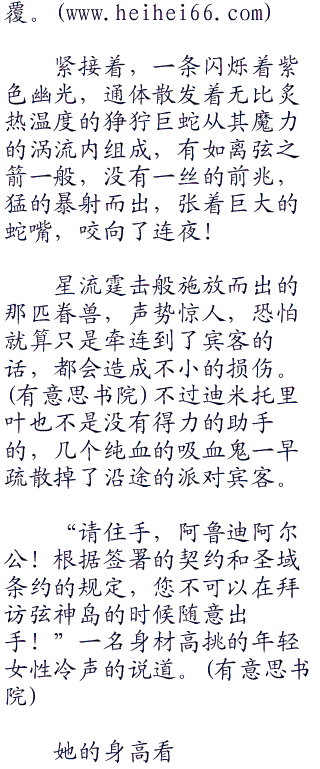 覆。(www.heihei66.com)
紧接着，一条闪烁着紫
色幽光，通体散发着无比炙
热温度的狰狞巨蛇从其魔力
的涡流内组成，有如离弦之
箭一般，没有一丝的前兆，
猛的暴射而出，张着巨大的
蛇嘴，咬向了连夜！
星流霆击般施放而出的
那匹眷兽，声势惊人，恐怕
就算只是牵连到了宾客的
话，都会造成不小的损伤。
(有意思书院)不过迪米托里
叶也不是没有得力的助手
的，几个纯血的吸血鬼一早
疏散掉了沿途的派对宾客。
“请住手，阿鲁迪阿尔
公！根据签署的契约和圣域
条约的规定，您不可以在拜
访弦神岛的时候随意出
手！”一名身材高挑的年轻
女性冷声的说道。(有意思书
院)
她的身高看